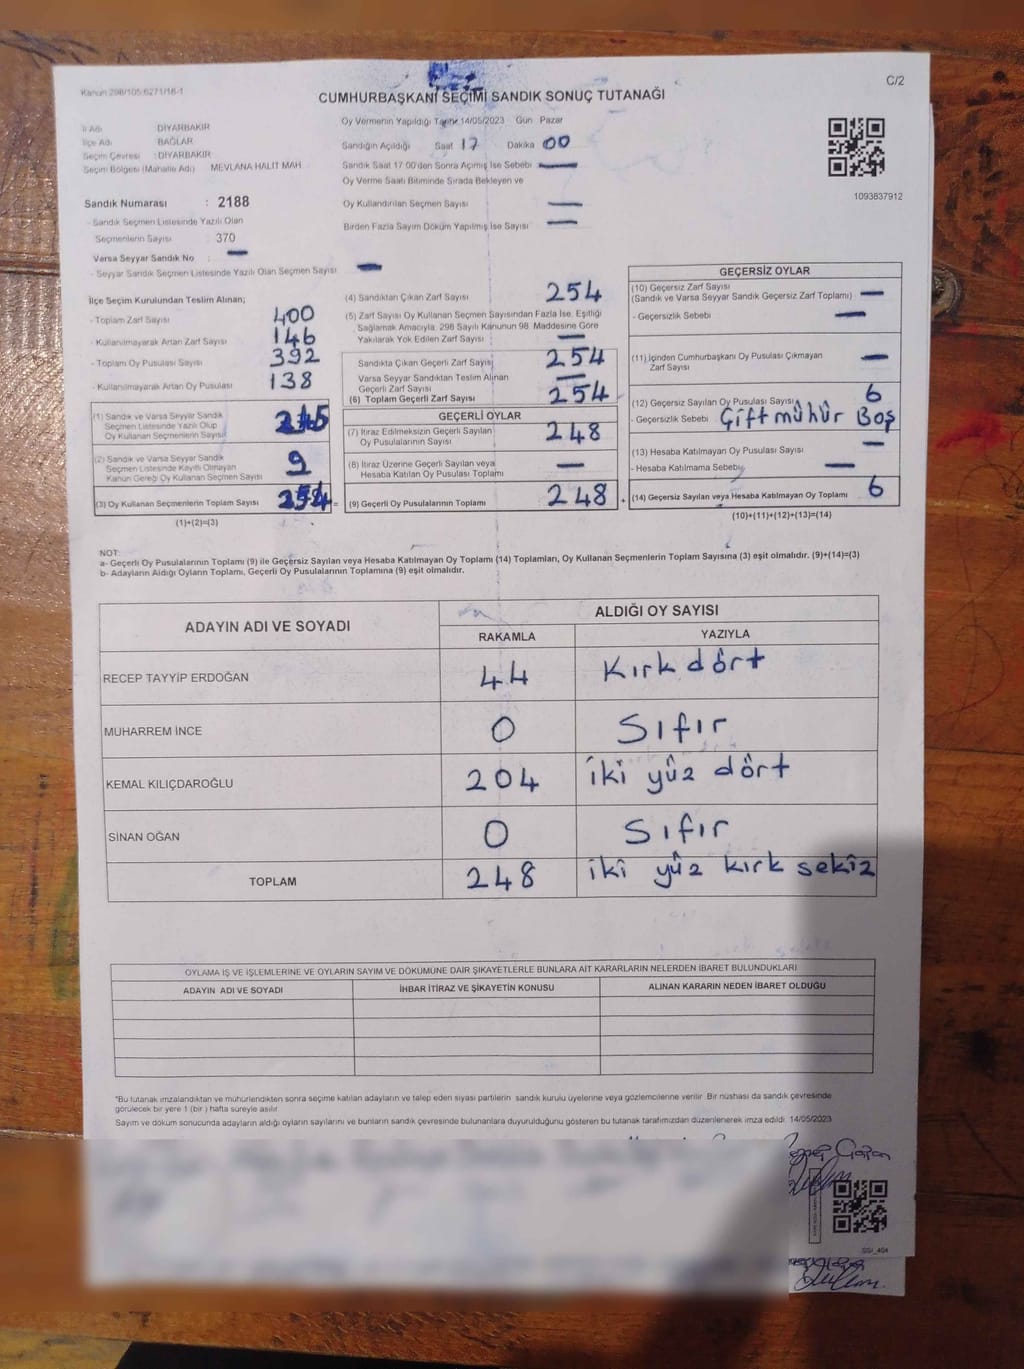 Kanun 298/105 6271/16-1
C/2
CUMHURBAŞKANI SEÇİMİ SANDIK SONUÇ TUTANAĞI
İl Adı DİYARBAKIR
İlçe Adı BAĞLAR
Seçim Çevresi : DİYARBAKIR
Seçim Bölgesi (Mahalle Adı) MEVLANA HALİT MAH
Sandık Numarası : 2188
- Sandık Seçmen Listesinde Yazılı Olan
Seçmenlerin Sayısı 370
Varsa Seyyar Sandık No : —
- Seyyar Sandık Seçmen Listesinde Yazılı Olan Seçmen Sayısı —
Oy Vermenin Yapıldığı Tarih: 14/05/2023 Gün Pazar
Sandığın Açıldığı Saat 17 Dakika 00
Sandık Saat 17.00'den Sonra Açımış İse Sebebi —
Oy Verme Saati Bitiminde Sırada Bekleyen ve
Oy Kullandırılan Seçmen Sayısı —
Birden Fazla Sayım Döküm Yapılmış İse Sayısı —
1093837912
İlçe Seçim Kurulundan Teslim Alınan;
- Toplam Zarf Sayısı 400
- Kullanılmayarak Artan Zarf Sayısı 146
- Toplam Oy Pusulası Sayısı 392
- Kullanılmayarak Artan Oy Pusulası 138
(1) Sandık ve Varsa Seyyar Sandık
Seçmen Listesinde Yazılı Olup
Oy Kullanan Seçmenlerin Sayısı
(2) Sandık ve Varsa Seyyar Sandık
Seçmen Listesinde Kayıtlı Olmayan
Kanun Gereği Oy Kullanan Seçmen Sayısı 9
(3) Oy Kullanan Seçmenlerin Toplam Sayısı 254 =
(1)+(2)=(3)
(4) Sandıktan Çıkan Zarf Sayısı 254
(5) Zarf Sayısı Oy Kullanan Seçmen Sayısından Fazla İse, Eşitliği
Sağlamak Amacıyla, 298 Sayılı Kanunun 98. Maddesine Göre
Yakılarak Yok Edilen Zarf Sayısı —
Sandıkta Çıkan Geçerli Zarf Sayısı 254
Varsa Seyyar Sandıktan Teslim Alınan
Geçerli Zarf Sayısı —
(6) Toplam Geçerli Zarf Sayısı 254
GEÇERLİ OYLAR
(7) İtiraz Edilmeksizin Geçerli Sayılan
Oy Pusulalarının Sayısı 248
(8) İtiraz Üzerine Geçerli Sayılan veya
Hesaba Katılan Oy Pusulası Toplamı —
(9) Geçerli Oy Pusulalarının Toplamı 248 +
GEÇERSİZ OYLAR
(10) Geçersiz Zarf Sayısı
(Sandık ve Varsa Seyyar Sandık Geçersiz Zarf Toplamı) —
- Geçersizlik Sebebi —
(11) İçinden Cumhurbaşkanı Oy Pusulası Çıkmayan
Zarf Sayısı —
(12) Geçersiz Sayılan Oy Pusulası Sayısı 6
- Geçersizlik Sebebi Çift mühür Boş
(13) Hesaba Katılmayan Oy Pusulası Sayısı —
- Hesaba Katılmama Sebebi —
(14) Geçersiz Sayılan veya Hesaba Katılmayan Oy Toplamı 6
(10)+(11)+(12)+(13)=(14)
NOT:
a- Geçerli Oy Pusulalarının Toplamı (9) ile Geçersiz Sayılan veya Hesaba Katılmayan Oy Toplamı (14) Toplamları, Oy Kullanan Seçmenlerin Toplam Sayısına (3) eşit olmalıdır. (9)+(14)=(3)
b- Adayların Aldığı Oyların Toplamı, Geçerli Oy Pusulalarının Toplamına (9) eşit olmalıdır.
ADAYIN ADI VE SOYADI
ALDIĞI OY SAYISI
RAKAMLA YAZIYLA
RECEP TAYYİP ERDOĞAN 44 Kırk dört
MUHARREM İNCE 0 Sıfır
KEMAL KILIÇDAROĞLU 204 iki yüz dört
SİNAN OĞAN 0 Sıfır
TOPLAM 248 iki yüz kırk sekiz
OYLAMA İŞ VE İŞLEMLERİNE VE OYLARIN SAYIM VE DÖKÜMÜNE DAİR ŞİKAYETLERLE BUNLARA AİT KARARLARIN NELERDEN İBARET BULUNDUKLARI
ADAYIN ADI VE SOYADI İHBAR İTİRAZ VE ŞİKAYETİN KONUSU ALINAN KARARIN NEDEN İBARET OLDUĞU
*Bu tutanak imzalandıktan ve mühürlendikten sonra seçime katılan adayların ve talep eden siyasi partilerin sandık kurulu üyelerine veya gözlemcilerine verilir. Bir nüshası da sandık çevresinde
görülecek bir yere 1 (bir) hafta süreyle asılır
Sayım ve döküm sonucunda adayların aldığı oyların sayılarını ve bunların sandık çevresinde bulunanlara duyurulduğunu gösteren bu tutanak tarafımızdan düzenlenerek imza edildi. 14/05/2023
SSI_404